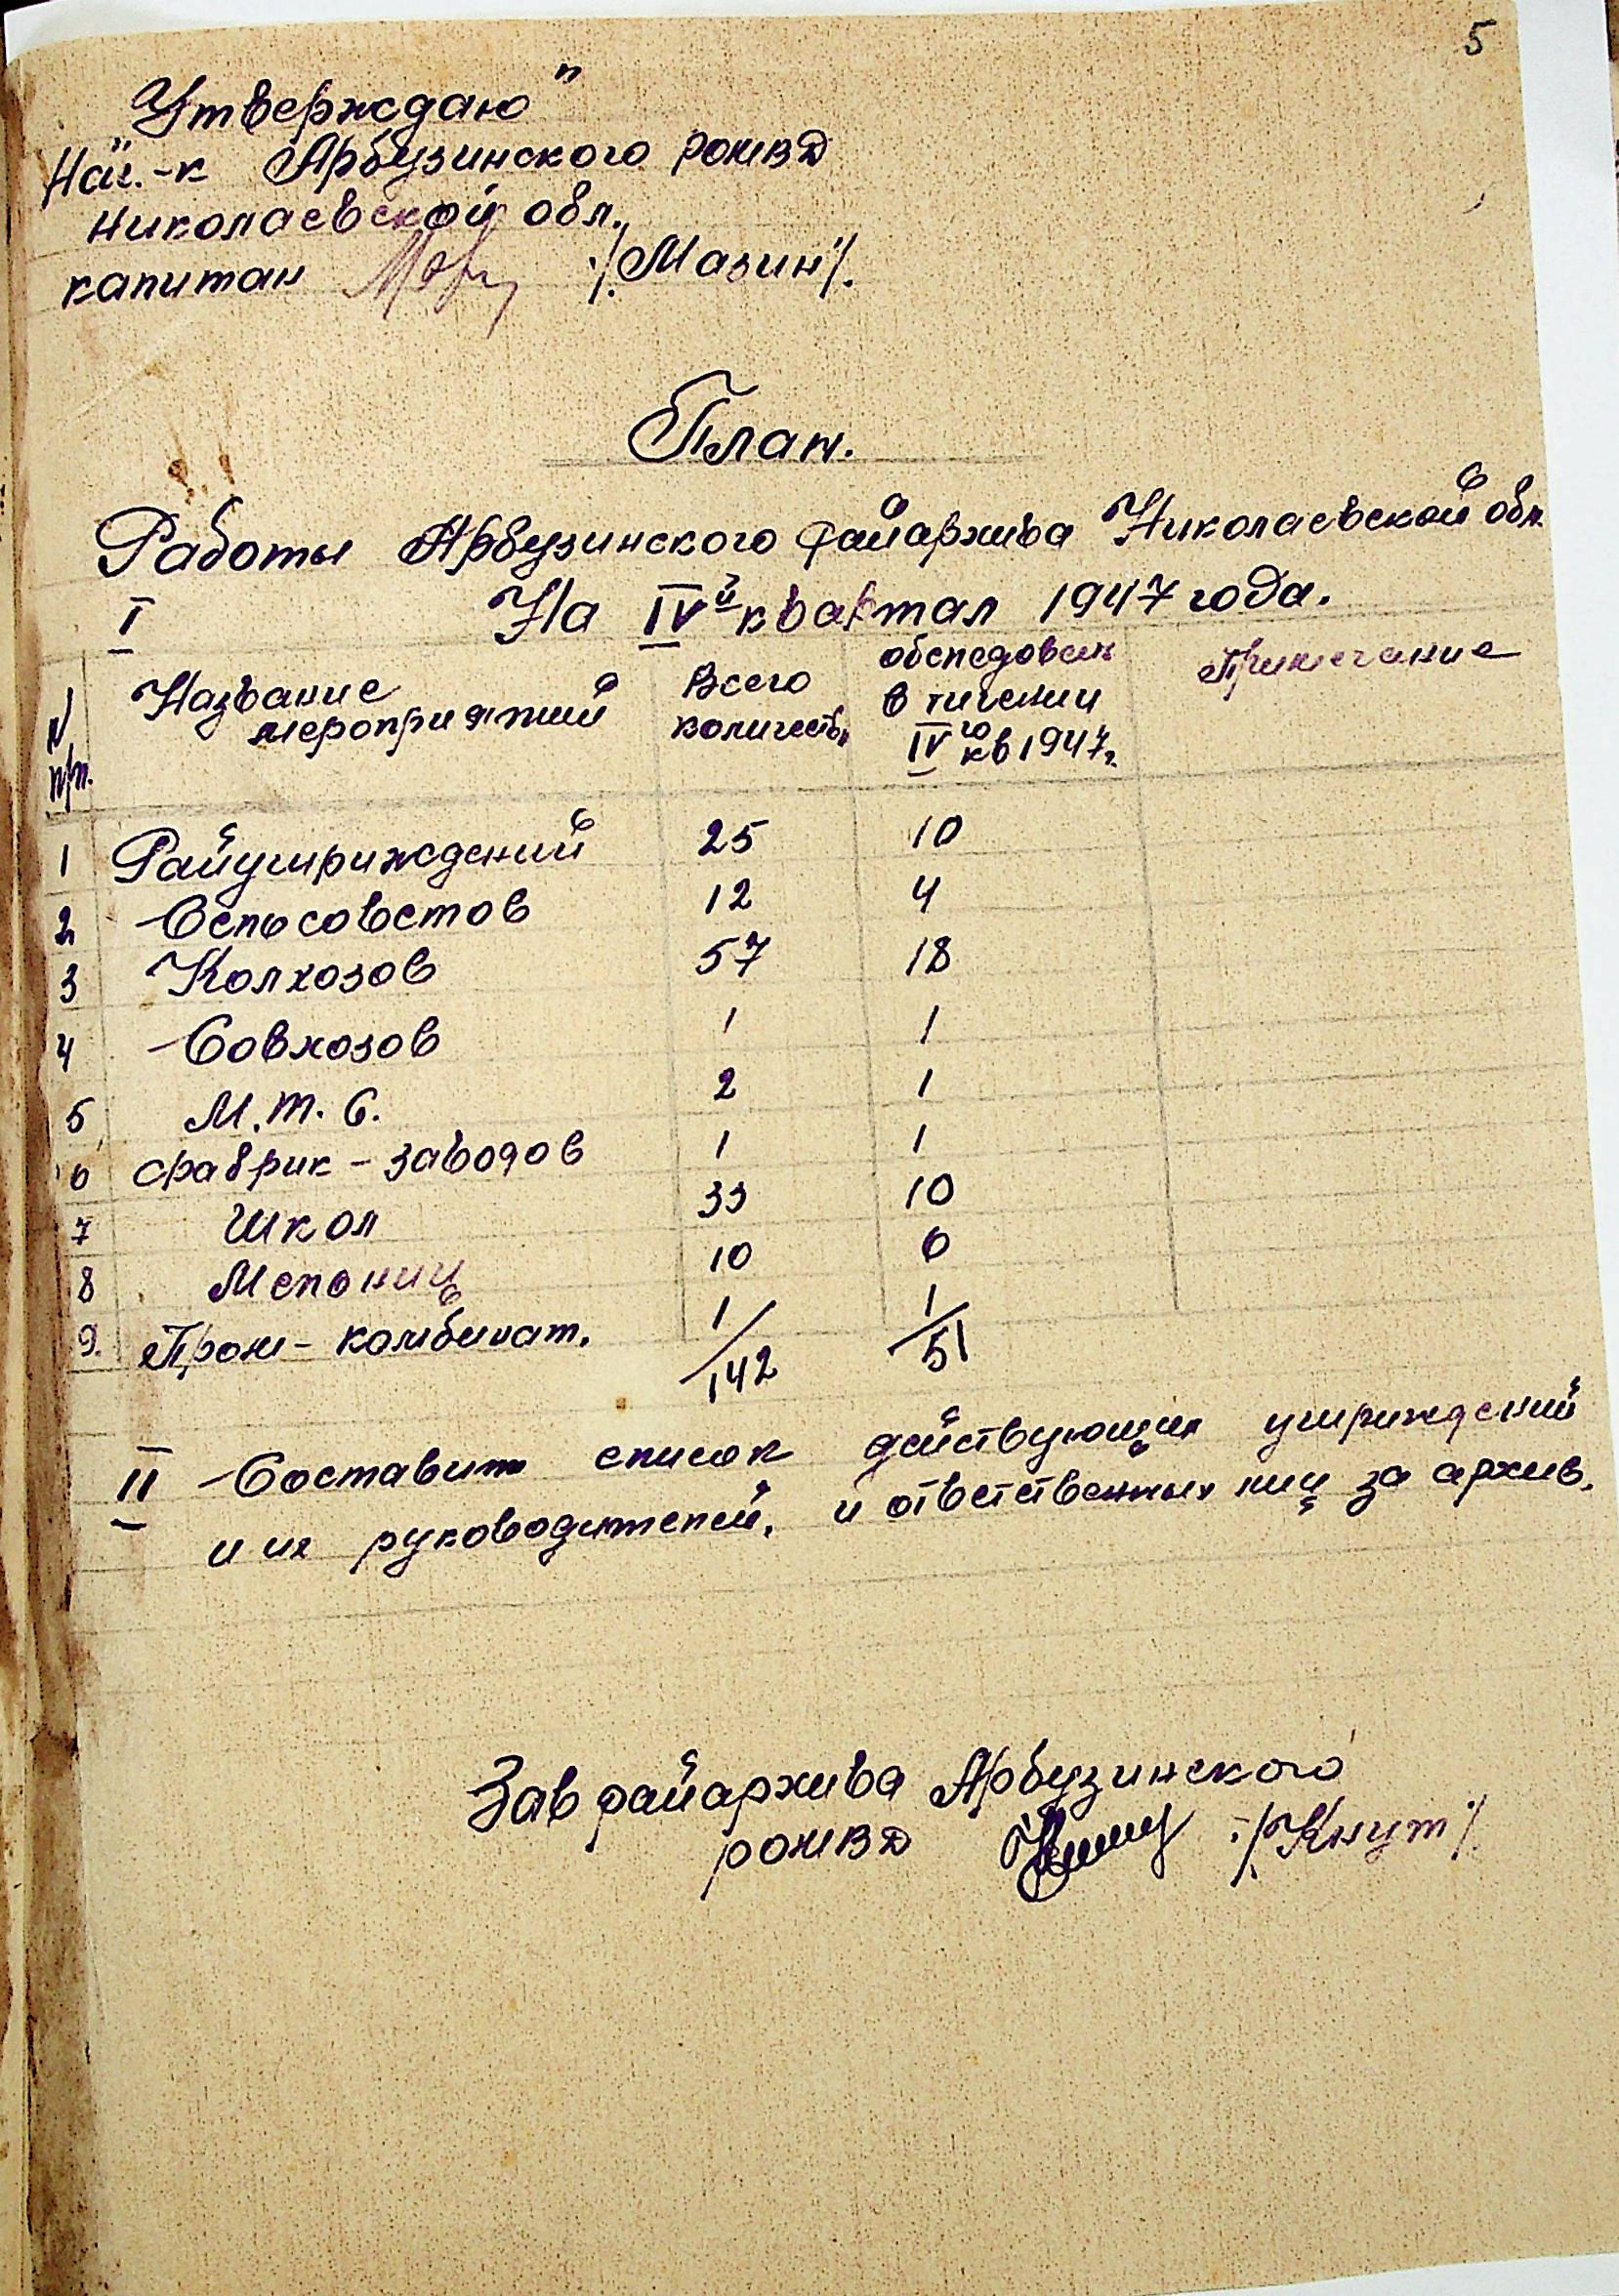 5
"Утверждаю"
Нач.-к Арбузинского РОМВД
Николаевской обл.
капитан /Мазин/.
План.
Работы Арбузинского Райархива Николаевской обл.
I На IVй квартал 1947 года.
N п/п. Название мероприятий Всего количеств, обследован в тичении IVго кв 1947г. Примечание
1 Райучриждений 25 10
2 Сельсоветов 12 4
3 Колхозов 57 18
4 Совхозов 1 1
5 М.Т.С. 2 1
6 Фабрик-заводов 1 1
7 Школ 33 10
8 Мельниц 10 6
9. Пром-комбинат. 1 1
142 51
II Составить список действующих учриждений
и их руководителей, и ответственных лиц за архив.
Зав райархива Арбузинского
РОМВД /Кнут/